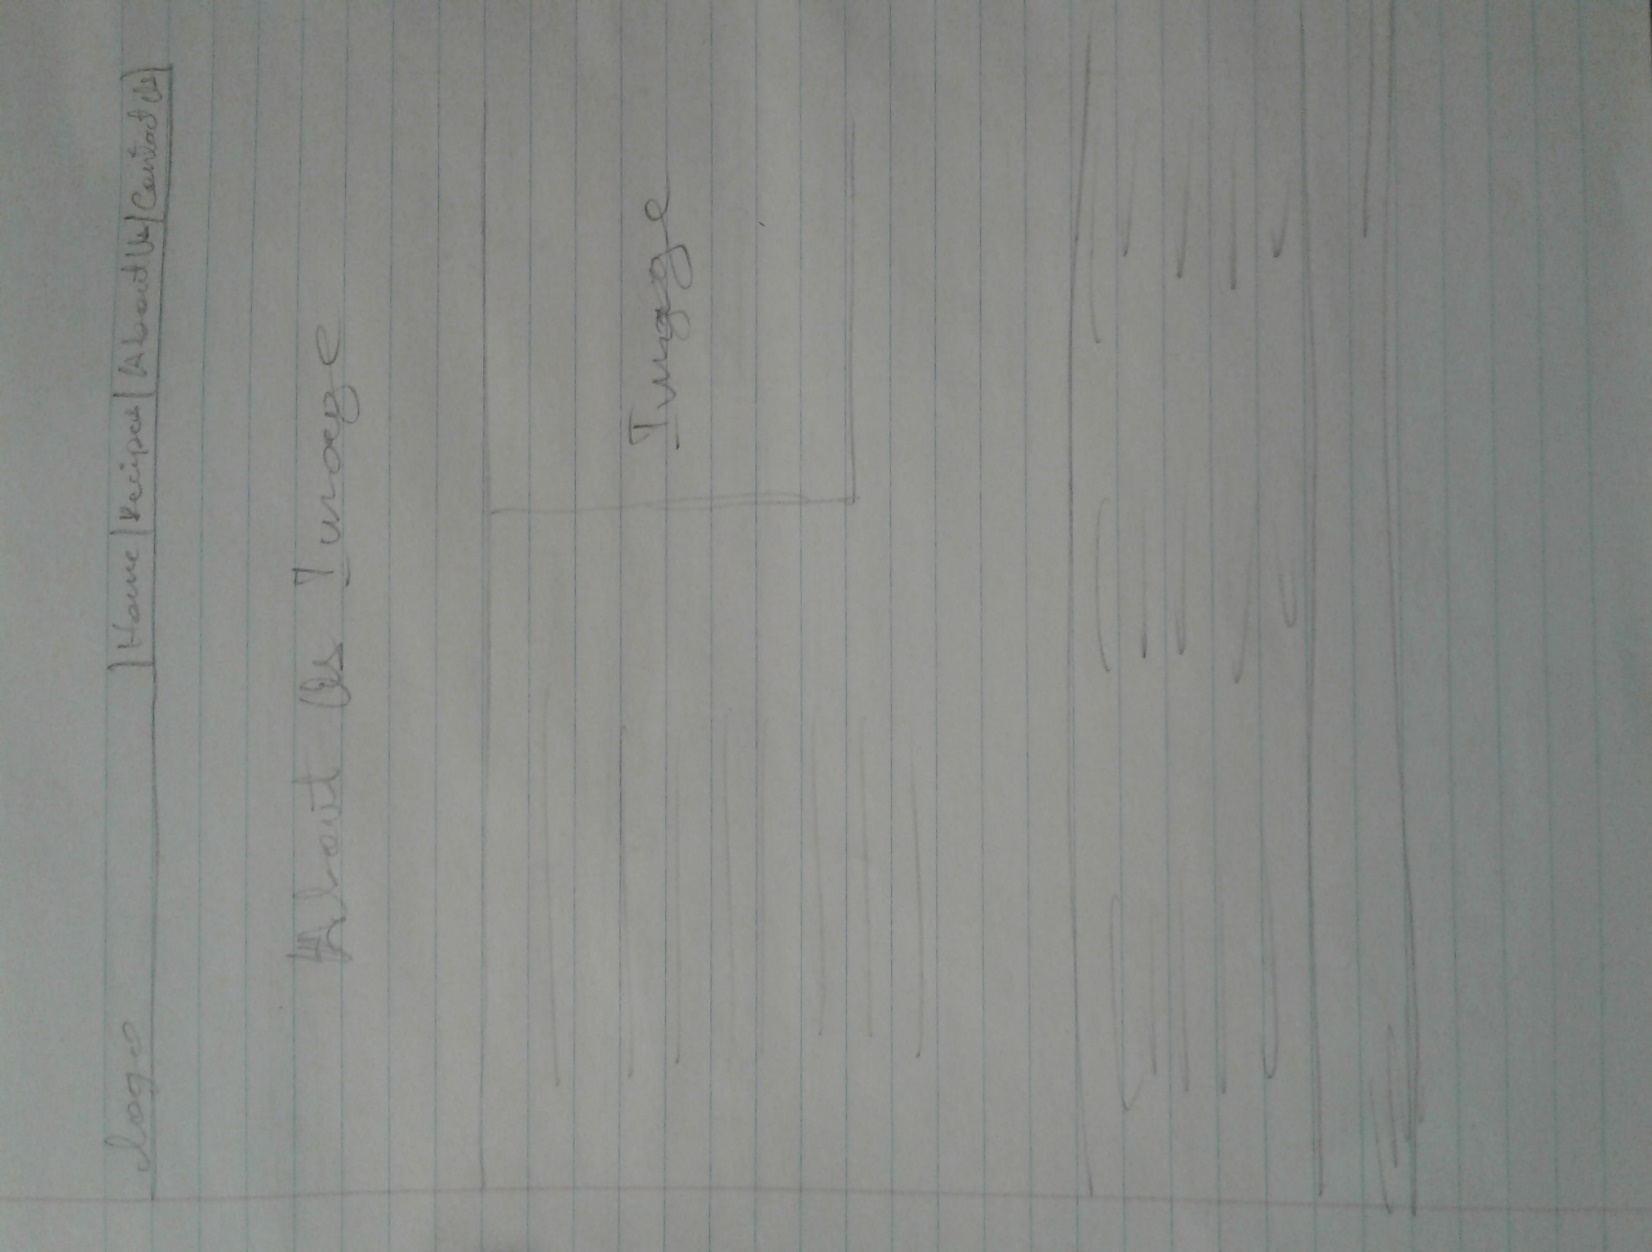 logo | Home | Recipes | About Us | Contact Us |
About Us Image
Image